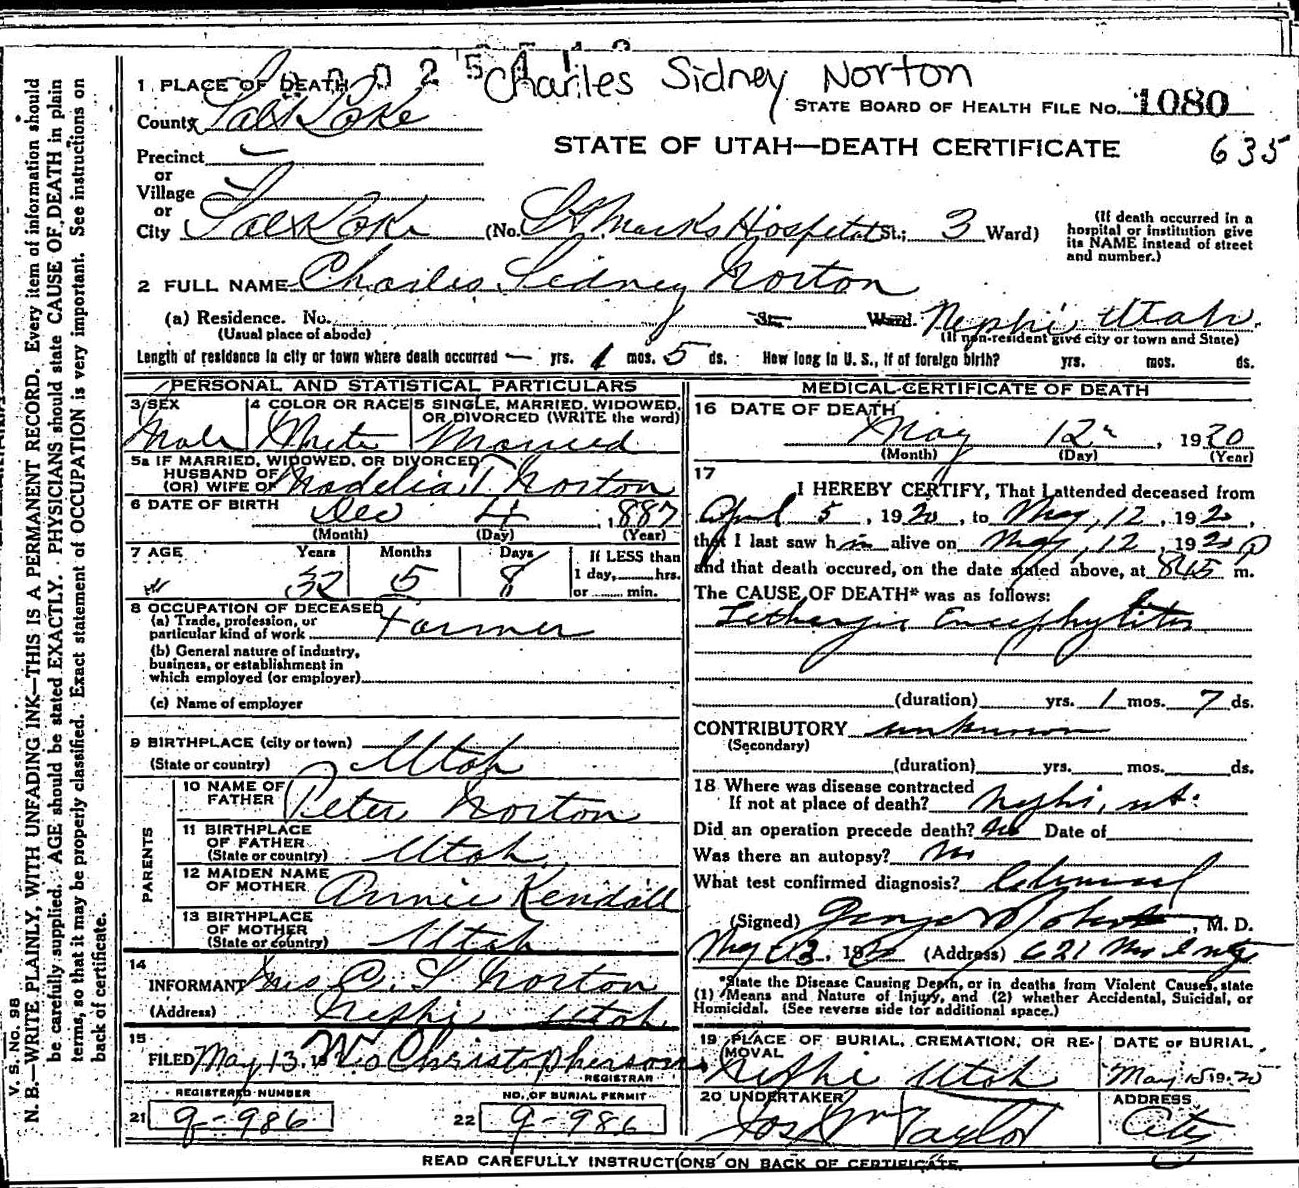 Charles Sidney Norton
1 PLACE OF DEATH
STATE BOARD OF HEALTH FILE No. 1080
County Salt Lake
STATE OF UTAH—DEATH CERTIFICATE
635
Precinct
or
Village
or
City Salt Lake (No. St Marks Hospital St.; 3 Ward)
(If death occurred in a
hospital or institution give
its NAME instead of street
and number.)
2 FULL NAME Charles Sidney Norton
(a) Residence. No. St. Ward. Nephi Utah.
(Usual place of abode) (If non-resident give city or town and State)
Length of residence in city or town where death occurred — yrs. 1 mos. 5 ds. How long in U. S., if of foreign birth? yrs. mos. ds.
PERSONAL AND STATISTICAL PARTICULARS
3 SEX 4 COLOR OR RACE 5 SINGLE, MARRIED, WIDOWED,
OR DIVORCED (WRITE the word)
Male White Married
5a IF MARRIED, WIDOWED, OR DIVORCED
HUSBAND OF
(OR) WIFE OF Madelia T. Norton
6 DATE OF BIRTH Dec 4, 1887
(Month) (Day) (Year)
7 AGE Years Months Days If LESS than
1 day, hrs.
or min.
32 5 8
8 OCCUPATION OF DECEASED
(a) Trade, profession, or
particular kind of work Farmer
(b) General nature of industry,
business, or establishment in
which employed (or employer)
(c) Name of employer
9 BIRTHPLACE (city or town)
(State or country) Utah
PARENTS
10 NAME OF
FATHER Peter Norton
11 BIRTHPLACE
OF FATHER
(State or country) Utah
12 MAIDEN NAME
OF MOTHER Annie Kendall
13 BIRTHPLACE
OF MOTHER
(State or country) Utah
14
INFORMANT Mrs C. S. Norton
(Address) Nephi Utah
15
FILED May 13. Christopherson
REGISTRAR
REGISTERED NUMBER NO. OF BURIAL PERMIT
21 9-986 22 9-986
MEDICAL CERTIFICATE OF DEATH
16 DATE OF DEATH
May 12, 1920
(Month) (Day) (Year)
17
I HEREBY CERTIFY, That I attended deceased from
April 5, 1920, to May, 12, 1920,
that I last saw h im alive on May, 12, 1920
and that death occured, on the date stated above, at 845 P m.
The CAUSE OF DEATH* was as follows:
Lethargic Encephylitis
(duration) yrs. 1 mos. 7 ds.
CONTRIBUTORY unknown
(Secondary)
(duration) yrs. mos. ds.
18 Where was disease contracted
If not at place of death? Nephi, ut.
Did an operation precede death? no Date of
Was there an autopsy? no
What test confirmed diagnosis? Clinical
(Signed) George Roberts, M. D.
May 13, 1920 (Address) 621
*State the Disease Causing Death, or in deaths from Violent Causes, state
(1) Means and Nature of Injury, and (2) whether Accidental, Suicidal, or
Homicidal. (See reverse side for additional space.)
19 PLACE OF BURIAL, CREMATION, OR RE-
MOVAL DATE OF BURIAL
Nephi Utah May 15 1920
20 UNDERTAKER ADDRESS
Jos Wm Taylor City
READ CAREFULLY INSTRUCTIONS ON BACK OF CERTIFICATE.
V. S. No. 98
N. B.—WRITE PLAINLY, WITH UNFADING INK—THIS IS A PERMANENT RECORD. Every item of information should
be carefully supplied. AGE should be stated EXACTLY. PHYSICIANS should state CAUSE OF DEATH in plain
terms, so that it may be properly classified. Exact statement of OCCUPATION is very important. See instructions on
back of certificate.